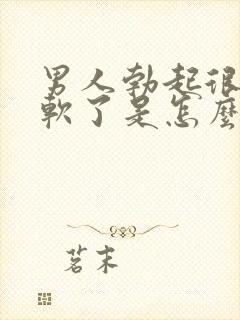 男人勃起很
軟了是怎麼
茗末